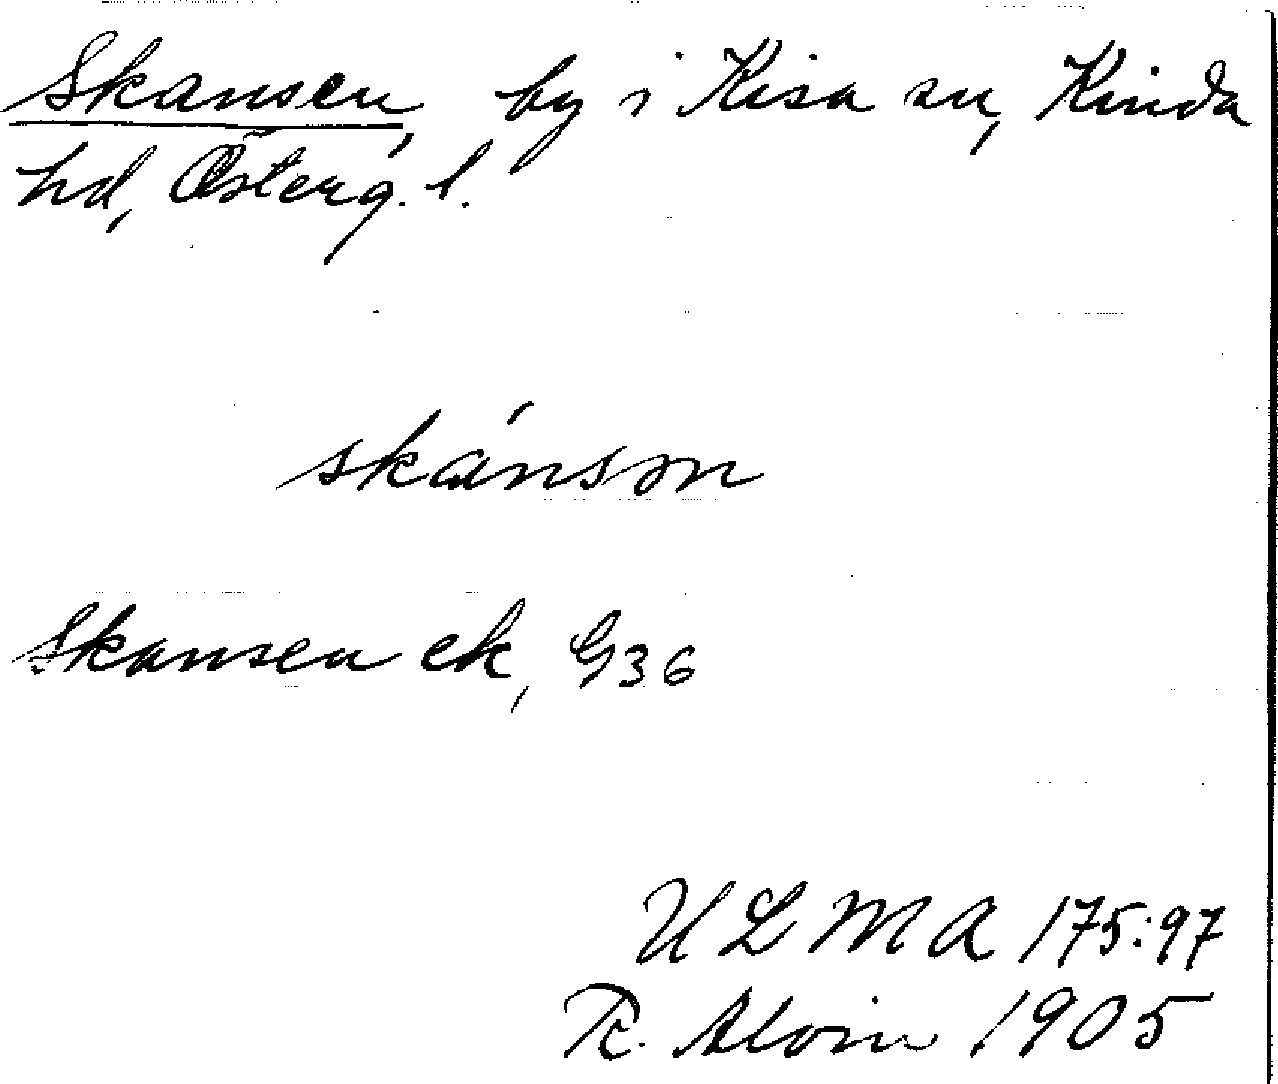 Skansen, by i Kisa sn, Kinda
hd, Österg. l.
skánsən
Skansen ek, G36
ULMA 175:97
R. Alvin 1905